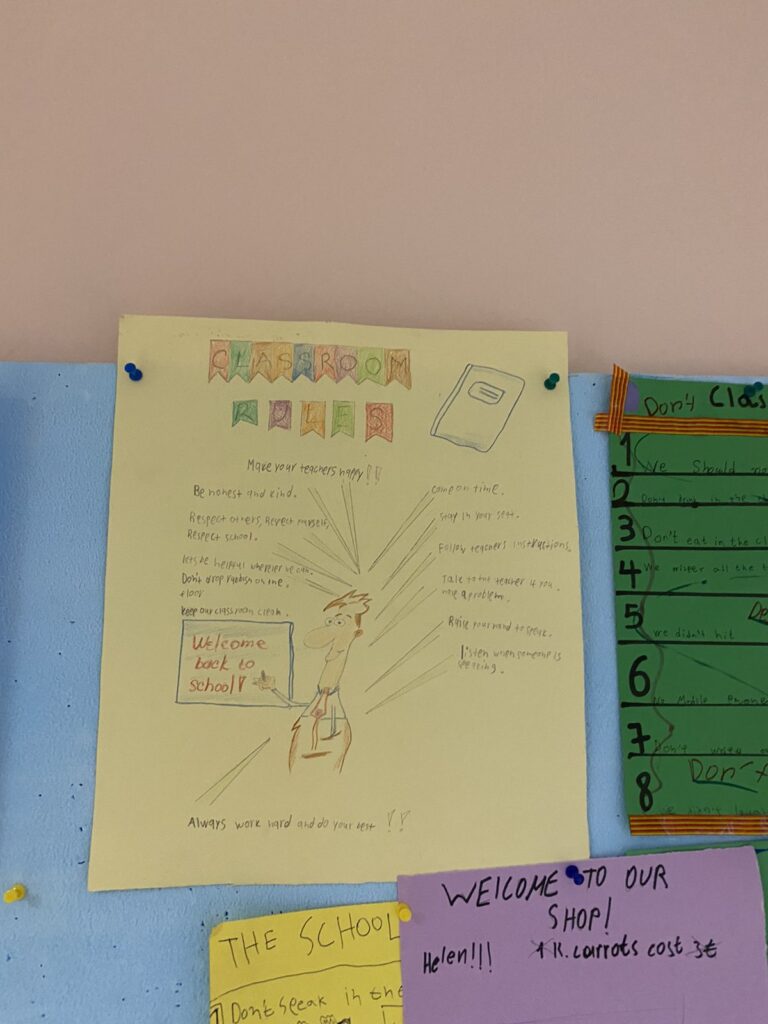 CLASSROOM
RULES
Make your teachers happy!!
Be honest and kind.
Respect others, Respect yourself,
Respect school.
lets be helpful wherever we can.
Don't drop rubbish on the
floor
keep our classroom clean.
Welcome
back to
school!
Come on time.
Stay in your seat.
Follow teachers instructions.
Talk to the teacher if you
have a problem.
Raise your hand to speak.
listen when someone is
speaking.
Always work hard and do your best !!
Don't Clas
1 We Should no
2 in the
3 Don't eat in the cl
4 We all the t
5 we didn't hit
6 No Mobile
7 Don't write
8 Don't
THE SCHOOL
1 Don't speak in the
WELCOME TO OUR
SHOP!
Helen!!! 1 K. carrots cost 3€